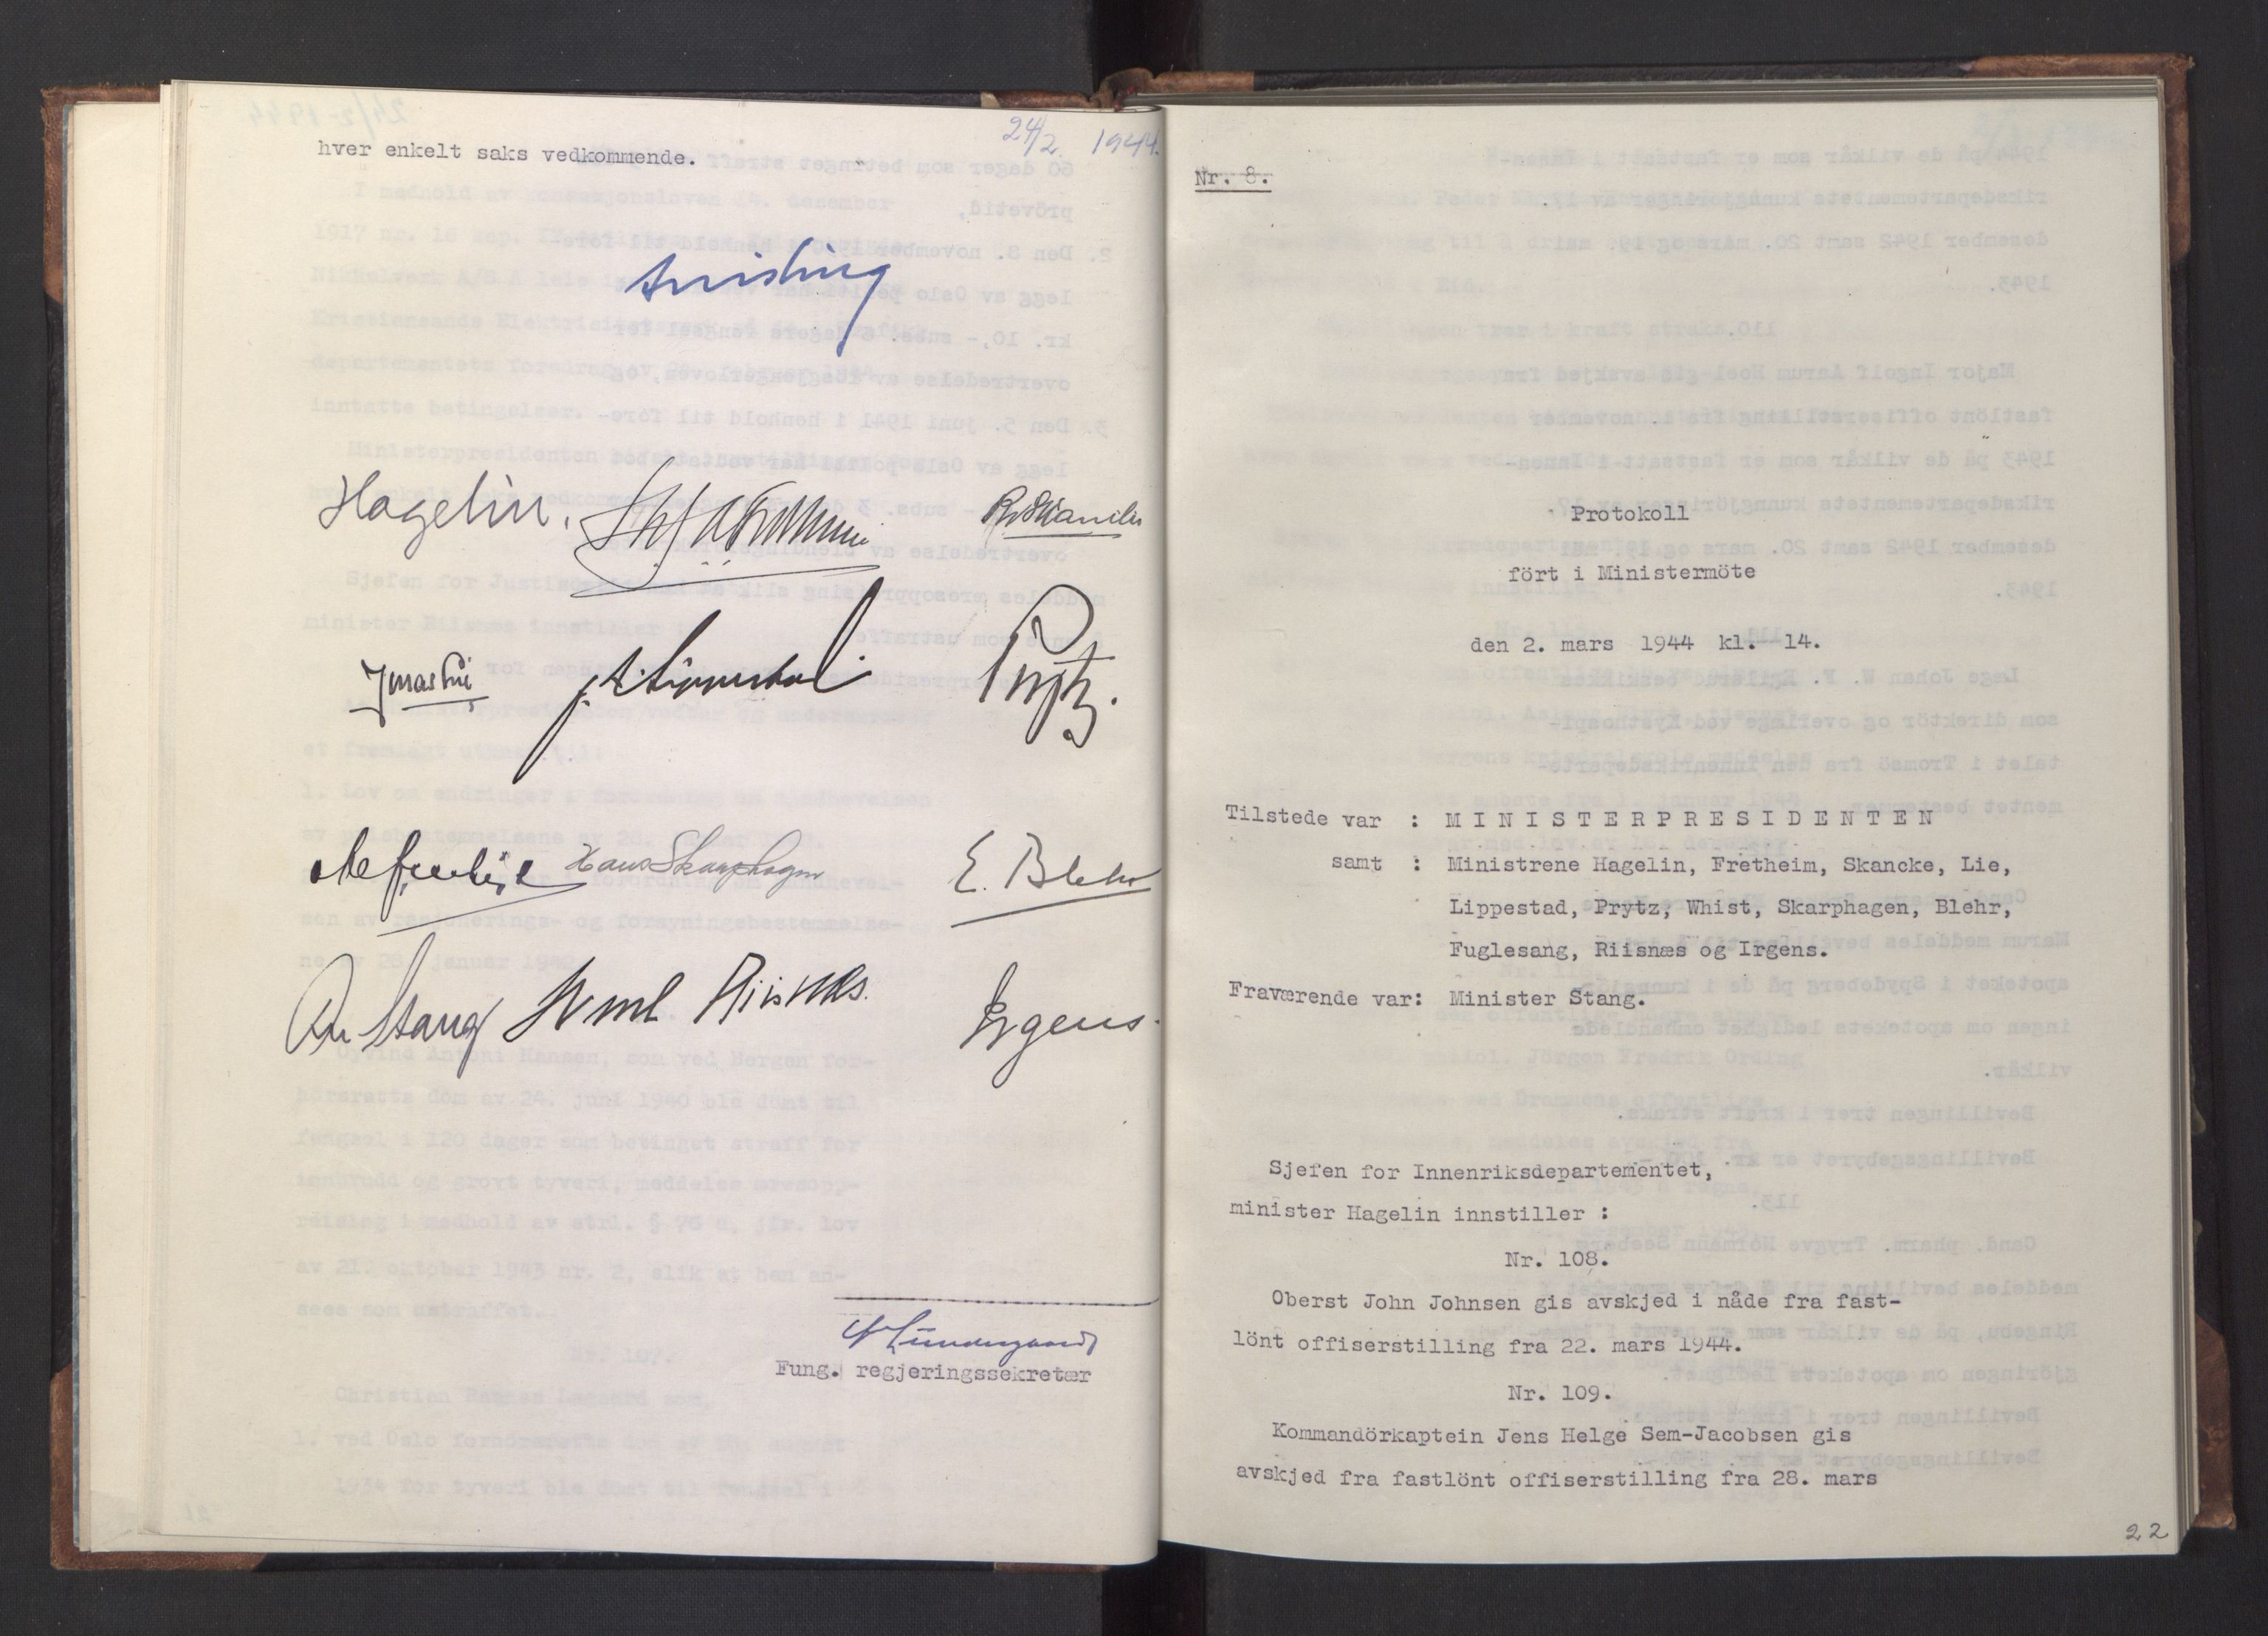 24/2 1944.
hver enkelt saks vedkommende.
Quisling
Hagelin.
R. Skancke
J. Lippestad
Prytz.
Hans Skarphagen
E. Blehr
Stang
Riisnæs.
Irgens.
Fung. regjeringssekretær
Nr. 8.
Protokoll
fört i Ministermöte
den 2. mars 1944 kl. 14.
Tilstede var : MINISTERPRESIDENTEN
samt : Ministrene Hagelin, Fretheim, Skancke, Lie,
Lippestad, Prytz, Whist, Skarphagen, Blehr,
Fuglesang, Riisnæs og Irgens.
Fraværende var: Minister Stang.
Sjefen for Innenriksdepartementet,
minister Hagelin innstiller :
Nr. 108.
Oberst John Johnsen gis avskjed i nåde fra fast-
lönt offiserstilling fra 22. mars 1944.
Nr. 109.
Kommandörkaptein Jens Helge Sem-Jacobsen gis
avskjed fra fastlönt offiserstilling fra 28. mars
22